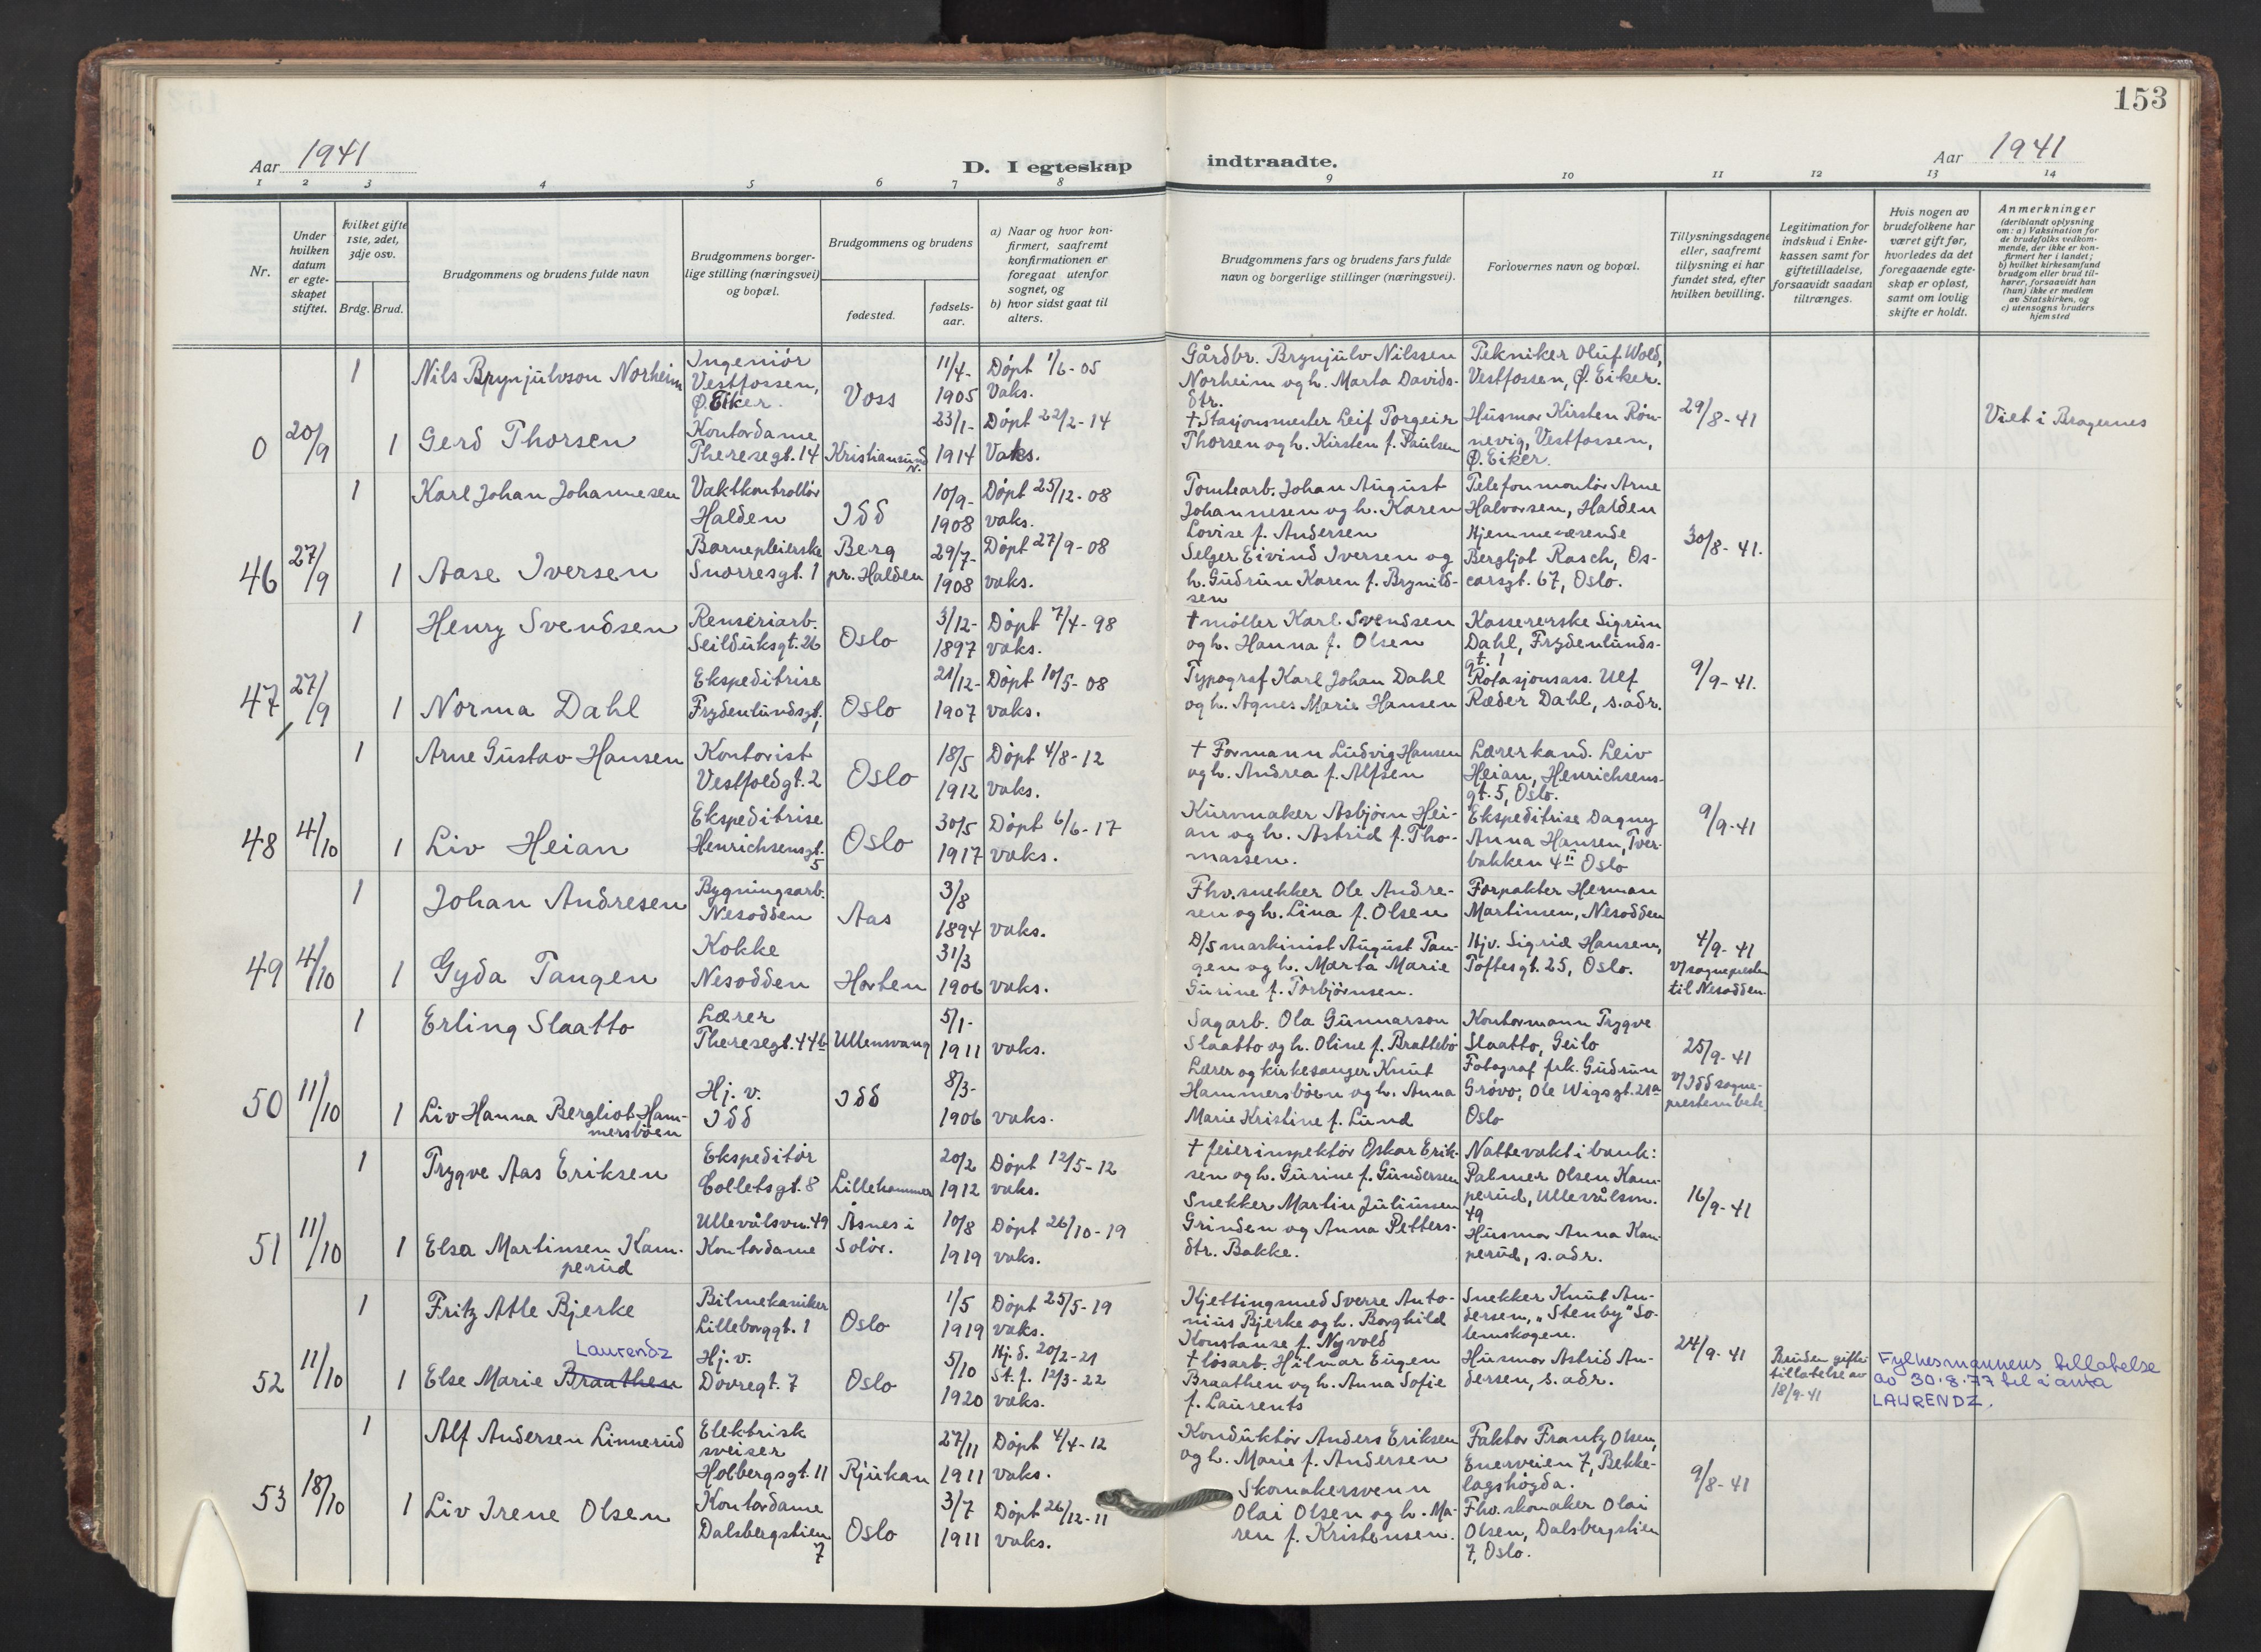 153
Aar 1941
D. I egteskap
indtraadte.
Aar 1941
1 2 3 4 5 6 7 8 9 10 11 12 13 14
Nr.
Under
hvilken
datum
er egte-
skapet
stiftet.
hvilket gifte
1ste, 2det,
3dje osv.
Brdg. Brud.
Brudgommens og brudens fulde navn
Brudgommens borger-
lige stilling (næringsvei)
og bopæl.
Brudgommens og brudens
fødested.
fødsels-
aar.
a) Naar og hvor kon-
firmert, saafremt
konfirmationen er
foregaat utenfor
sognet, og
b) hvor sidst gaat til
alters.
Brudgommens fars og brudens fars fulde
navn og borgerlige stillinger (næringsvei).
Forlovernes navn og bopæl.
Tillysningsdagene
eller, saafremt
tillysning ei har
fundet sted, efter
hvilken bevilling.
Legitimation for
indskud i Enke-
kassen samt for
giftetilladelse,
forsaavidt saadan
tiltrænges.
Hvis nogen av
brudefolkene har
været gift før,
hvorledes da det
foregaaende egte-
skap er opløst,
samt om lovlig
skifte er holdt.
Anmerkninger
(deriblandt oplysning
om: a) Vaksination for
de brudefolks vedkom-
mende, der ikke er kon-
firmert her i landet;
b) hvilket kirkesamfund
brudgom eller brud til-
hører, forsaavidt han
(hun) ikke er medlem
av Statskirken, og
c) utensogns bruders
hjemsted
0
20/9
1
Nils Brynjulvson Norheim
Ingeniör
Vestfossen,
Ø. Eiker.
Voss
11/4-
1905
Döpt 1/6-05
Vaks.
1
Gerd Thorsen
Kontordame
Theresegt. 14
Kristiansund
N.
23/1-
1914
Döpt 22/2-14
Vaks.
Gårdbr. Brynjulv Nilssen
Norheim og h. Marta Davids-
dtr.
† Stasjonsmester Leif Torgeir
Thorsen og h. Kirsten f. Paulsen
Tekniker Oluf Wold,
Vestfossen, Ø. Eiker.
Husmor Kirsten Rön-
nevig, Vestfossen,
Ø. Eiker.
29/8-41
Viet i Bragernes
46
27/9
1
Karl Johan Johannesen
Vaktkontrollör
Halden
Idd
10/9-
1908
Döpt 25/12-08
vaks.
1
Aase Iversen
Barnepleierske
Snorresgt. 1
Berg
pr. Halden
29/7-
1908
Döpt 27/9-08
vaks.
Tomtearb. Johan August
Johannesen og h. Karen
Lovise f. Andersen
Selger Eivind Iversen og
h. Gudrun Karen f. Brynild-
sen
Telefonmontör Arne
Halvorsen, Halden
Hjemmeværende
Bergljot Rasch, Os-
carsgt. 67, Oslo.
30/8-41.
47
27/9
1
Henry Svendsen
Renseriarb.
Seilduksgt. 26
Oslo
3/12-
1897
Döpt 7/4-98
vaks.
1
Norma Dahl
Ekspeditrise
Frydenlundsgt.
1
Oslo
21/12-
1907
Döpt 10/5-08
vaks.
† möller Karl Svendsen
og h. Hanna f. Olsen
Typograf Karl Johan Dahl
og h. Agnes Marie Hansen
Kassererske Sigrun
Dahl, Frydenlunds-
gt. 1
Rotasjonsass. Ulf
Ræder Dahl, s. adr.
9/9-41.
48
4/10
1
Arne Gustav Hansen
Kontorist
Vestfoldgt. 2
Oslo
18/5
1912
Döpt 4/8-12
vaks.
1
Liv Heian
Ekspeditrise
Henrichsensgt.
5
Oslo
30/5
1917
Döpt 6/6-17
vaks.
† Formann Ludvig Hansen
og h. Andrea f. Alfsen
Kurvmaker Asbjörn Hei-
an og h. Astrid f. Tho-
massen.
Lærerkand. Leiv
Heian, Henrichsens-
gt. 5, Oslo.
Ekspeditrise Dagny
Anna Hansen, Tver-
bakken 4 II Oslo
9/9-41
49
4/10
1
Johan Andresen
Bygningsarb.
Nesodden
Aas
3/8
1894
vaks.
1
Gyda Tangen
Kokke
Nesodden
Horten
31/3
1906
vaks.
Fhv. snekker Ole Andre-
sen og h. Lina f. Olsen
D/S maskinist August Tan-
gen og h. Marta Marie
Gurine f. Torbjörnsen.
Forpakter Herman
Martinsen, Nesodden
Hjv. Sigrid Hansen,
Toftesgt. 25, Oslo.
4/9-41
v/ sognepresten
til Nesodden.
50
11/10
1
Erling Slaatto
Lærer
Theresegt. 44b
Ullensvang
5/1-
1911
vaks.
1
Liv Hanna Bergliot Ham-
mersböen
Hj. v.
Idd
Idd
8/3-
1906
vaks.
Sagarb. Ola Gunnarson
Slaatto og h. Oline f. Brattebö
Lærer og kirkesanger Knut
Hammersböen og h. Anna
Marie Kristine f. Lund
Kontormann Trygve
Slaatto, Geilo
Fotograf frk. Gudrun
Grövo, Ole Wigsgt. 21a
Oslo
25/9-41
v/ Idd sogne-
prestembete
51
11/10
1
Trygve Aas Eriksen
Ekspeditör
Colletsgt. 8
Lillehammer
20/2
1912
Döpt 12/5-12
vaks.
1
Elsa Martinsen Kam-
perud
Ullevålsvn. 49
Kontordame
Åsnes i
Solör.
10/8
1919
Döpt 26/10-19
vaks.
† feierinspektör Oskar Erik-
sen og h. Gurine f. Gundersen
Snekker Martin Juliussen
Grinden og Anna Petters-
dtr. Bakke.
Nattevakt i bank:
Palmer Olsen Kam-
perud, Ullevålsvn.
49
Husmor Anna Kam-
perud, s. adr.
16/9-41
52
11/10
1
Fritz Atle Bjerke
Bilmekaniker
Lilleborggt. 1
Oslo
1/5
1919
Döpt 25/5-19
vaks.
1
Lawrendz
Else Marie Braathen
Hj. v.
Dovregt. 7
Oslo
5/10
1920
Hj. d. 20/2-21
St. f. 12/3-22
vaks.
Kjettingsmed Sverre Anto-
nius Bjerke og h. Borghild
Konstanse f. Nyvold
† lösarb. Hilmar Eugen
Braathen og h. Anna Sofie
f. Laurents
Snekker Knut An-
dersen, "Stenby" So-
lemskogen.
Husmor Astrid An-
dersen, s. adr.
24/9-41
Bruden gifte-
tillatelse av
18/9-41
Fylkesmannens tillatelse
av 30.8.77 til å anta
LAWRENDZ.
53
18/10
1
Alf Andersen Linnerud
Elektrisk
sveiser
Holbergsgt. 11
Rjukan
27/11
1911
Döpt 4/4-12
vaks.
1
Liv Irene Olsen
Kontordame
Dalsbergstien
7
Oslo
3/7
1911
Döpt 26/12-11
vaks.
Konduktör Anders Eriksen
og h. Marie f. Andersen
Skomakersvenn
Olai Olsen og h. Ma-
ren f. Kristensen.
Faktor Frantz Olsen,
Enerveien 7, Bekke-
lagshögda.
Fhv. skomaker Olai
Olsen, Dalsbergstien
7, Oslo.
9/8-41